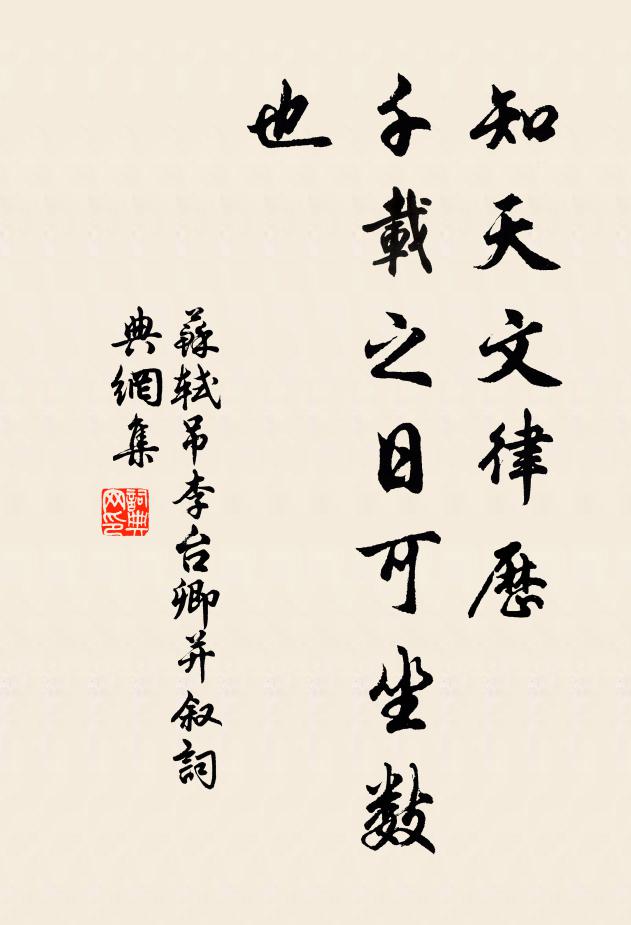 知天文律歷
千載之日可坐數
也
蘇軾吊李台卿并叙詞
典網集
詞典网印